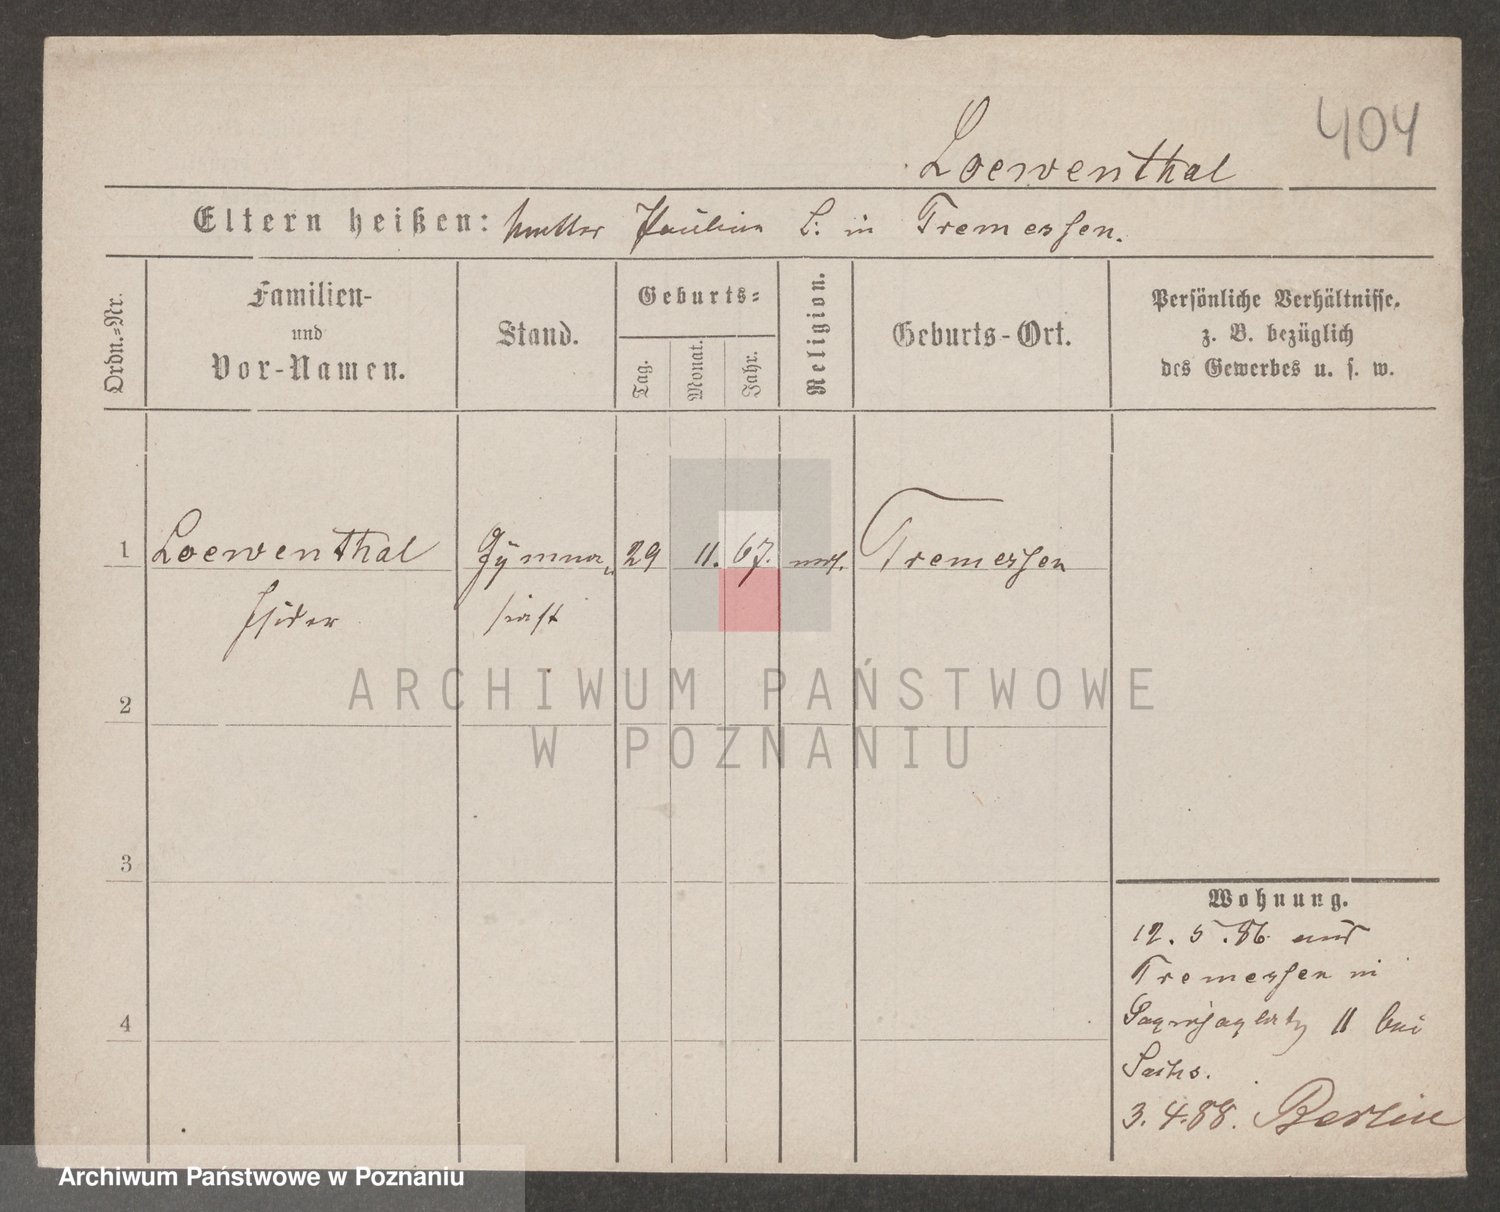 404
Loewenthal
Eltern heißen: Mutter Pauline L: in Tremessen.
Ordn.=Nr.
Familien-
und
Vor-Namen.
Stand.
Geburts=
Tag.
Monat.
Jahr.
Religion.
Geburts-Ort.
Persönliche Verhältnisse,
z. B. bezüglich
des Gewerbes u. s. w.
1 Loewenthal Gymna„ 29 11. 67. mos. Tremessen
Isidor siast
ARCHIWUM PAŃSTWOWE
W POZNANIU
2
3
4
Wohnung.
12.5.86 aus
Tremessen in
11 bei
Sachs.
3.4.88. Berlin
Archiwum Państwowe w Poznaniu